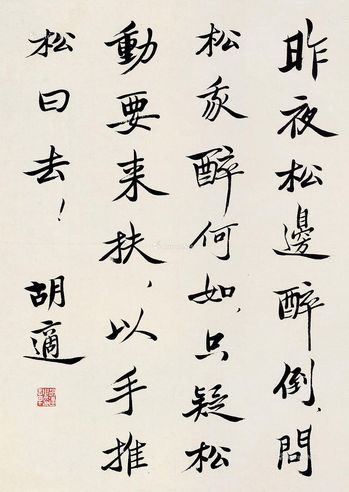 昨夜松邊醉倒、問
松我醉何如、只疑松
動要来扶、以手推
松曰去！
胡適